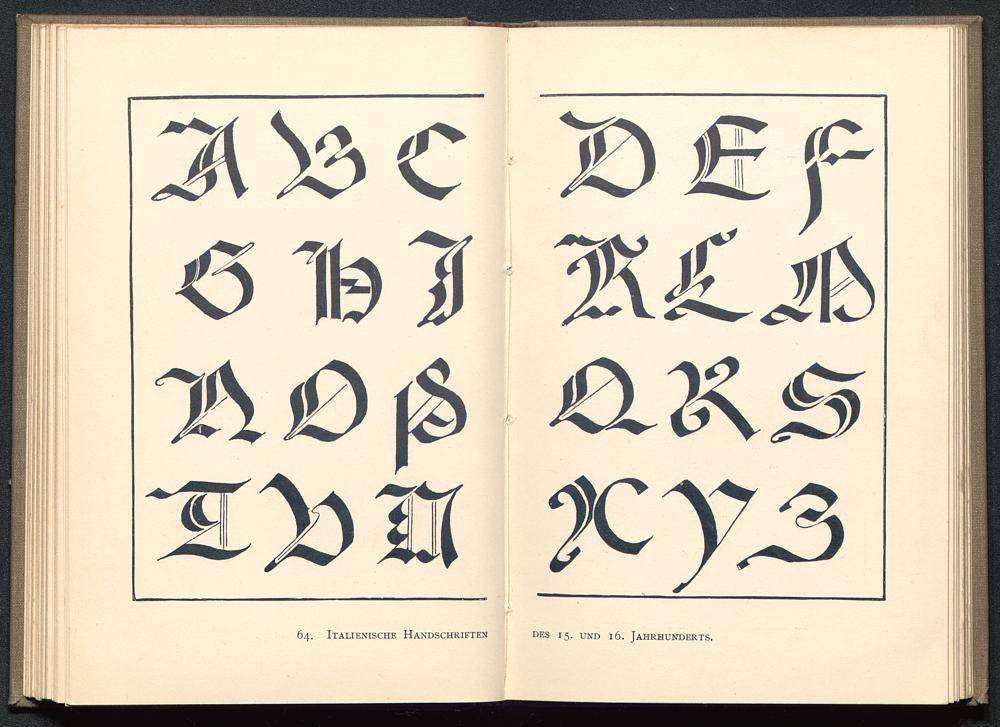 A B C D E F
G H I K L M
N O P Q R S
T V X Y Z
64. Italienische Handschriften des 15. und 16. Jahrhunderts.